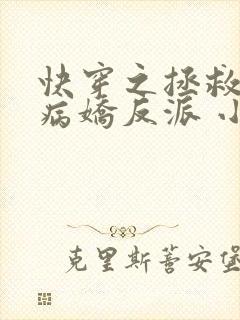 快穿之拯救
病嬌反派 小
克里斯蒈安堡